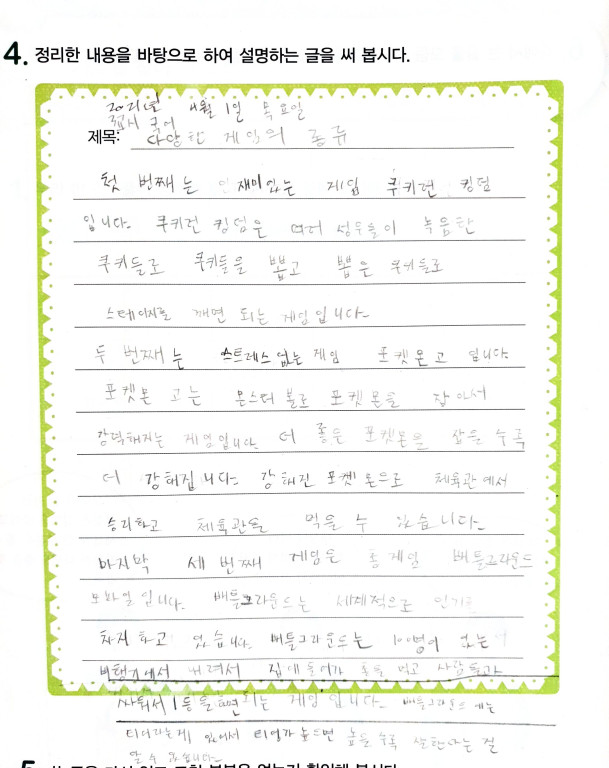 4. 정리한 내용을 바탕으로 하여 설명하는 글을 써 봅시다.
2021년 4월 1일 목요일
국어
제목: 다양한 게임의 종류
첫 번째는 재미있는 게임 쿠키런 킹덤
입니다. 쿠키런 킹덤은 여러 성우들이 녹음한
쿠키들로 쿠키들을 뽑고 뽑은 쿠키들로
스테이지를 깨면 되는 게임입니다.
두 번째는 스트레스 없는 게임 포켓몬고 입니다.
포켓몬 고는 몬스터 볼로 포켓몬을 잡아서
강력해지는 게임입니다. 더 좋은 포켓몬을 잡을 수록
더 강해집니다. 강해진 포켓몬으로 체육관에서
승리하고 체육관을 먹을 수 있습니다.
마지막 세 번째 게임은 총게임 배틀그라운드
모바일 입니다. 배틀그라운드는 세계적으로 인기를
차지하고 있습니다. 배틀그라운드는 100명이 있는
비행기에서 내려서 집에 들어가 총을 먹고 사람들과
싸워서 1등을 하면 되는 게임 입니다. 배틀그라운드에는
티어라는게 있어서 티어가 높으면 높을 수록 잘한다는 걸
알 수 있습니다.